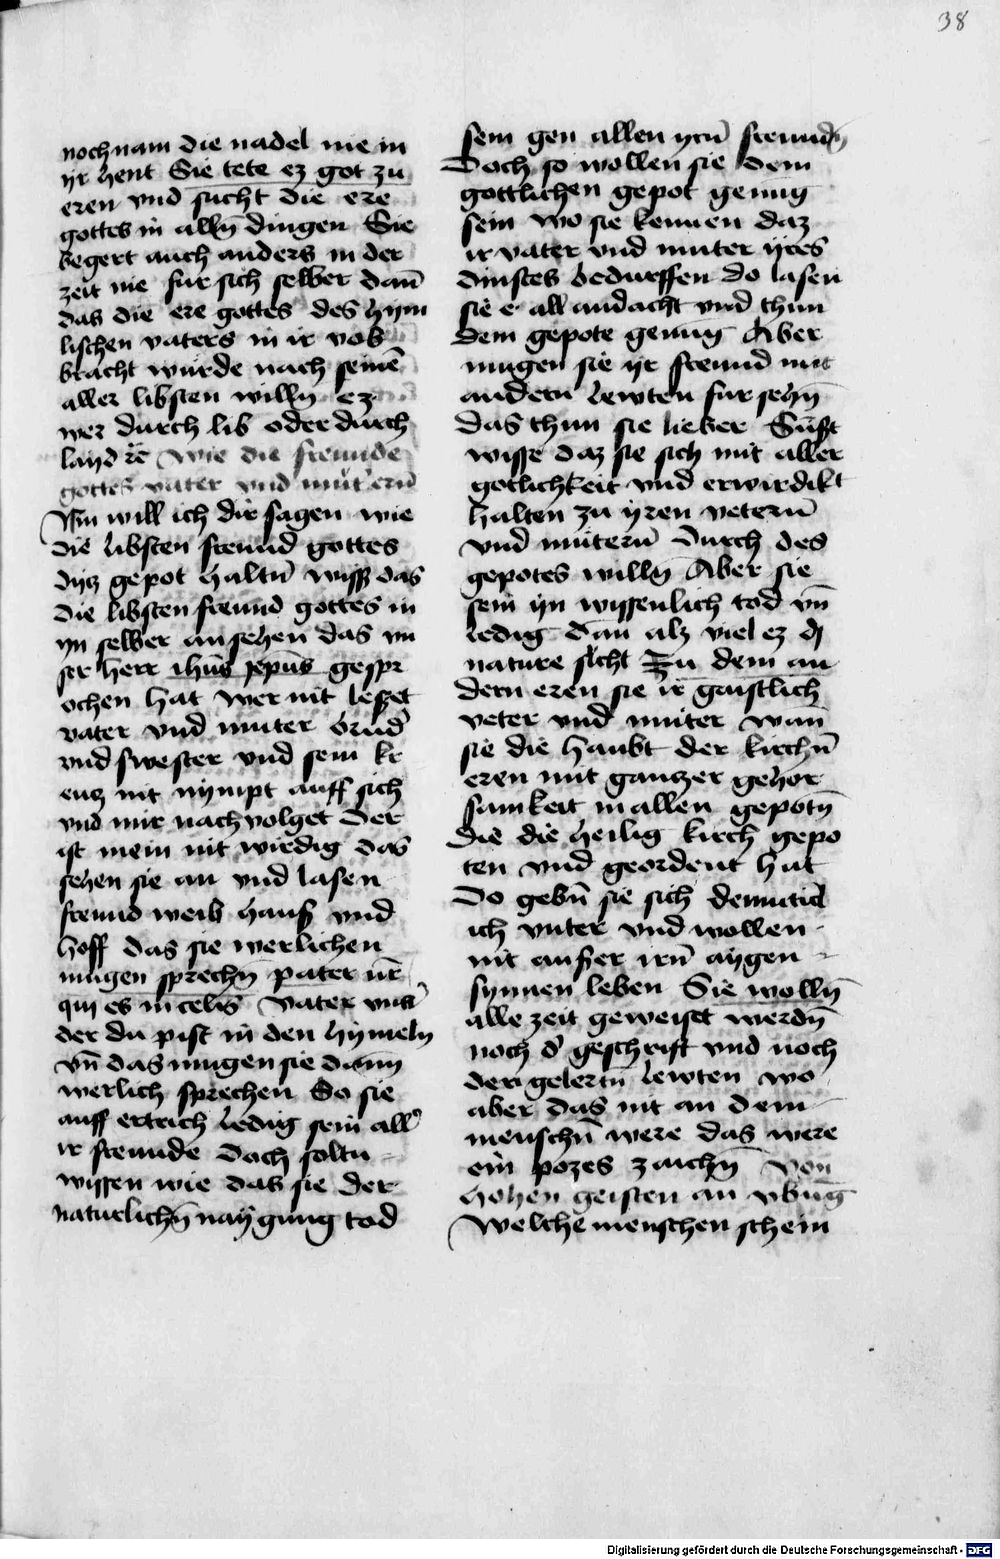 38
noch nam die nadel nie in
yr hent Sie tete ez got zu
eren vnd sucht die ere
gottes in alln̄ dingen Sie
begert auch anders in der
zeit nie fur sich selber dan̄
das die ere gottes des hym
lischen vaters in ir vol
bracht wurde nach seinē
aller libsten willn̄ ez
wer durch lib oder durch
layd rc̄ Wie die freunde
gottes vater vnd mutern̄
Nu will ich dir sagen wie
die libsten freund gottes
ditz gepot haltn̄ wiss das
die libsten freund gottes in
yn selber ansehen das vn
ser herr ihūs xpūs gespr
ochen hat wer nit lesszet
vater vnd muter brud̉
vnd swester vnd sein kr
eutz nit nympt auff sich
vnd mir nach volget der
ist mein nit wirdig das
sehen sie an vnd lasen
freund weib hauss vnd
hoff das sie werlichen
mugen sprechn̄ pater nr̄
qui es in celis Vater vns̉
der du pist in den hymeln
vn̄ das mugen sie dann
werlich sprechen So sie
auff ertrich ledig sein all̉
ir freunde Doch soltu
wissen wie das sie der
naturlichn̄ naygung tod
sein gen allen yrn̄ freunden
Doch so wollen sie dem
gottlichen gepot genug
sein wo sie kennen daz
ir vater vnd muter yres
dinstes bedurffen do lasen
sie e all andacht vnd thun
dem gepote genug Aber
mugen sie yr freund mit
andern̄ lewten fur sehn̄
das thun sie lieber Sust
wisse daz sie sich mit aller
gotlichkeit vnd erwirdikt
halten zu yren vetern̄
vnd mutern̄ Durch des
gepotes willn̄ Aber sie
sein yn wissenlich tod vn̄
ledig dan̄ alz viel ez d̉
nature sicht Zu dem an
dern eren sie ir gaistlich
veter vnd muter wan̄
sie die haubt der kirchn̄
eren mit gantzer gehor
samkeit in allen gepotn̄
die die heilig kirch gepo
ten vnd geordent hat
Do gebn̄ sie sich demutic̄l
ich vnter vnd wollen
nit ausser irn̄ aygen
synnen leben Sie wolln̄
alle zeit geweiset werdn̄
noch d̉ geschrift vnd noch
der gelertn̄ lewten wo
aber das nit an dem
menschn̄ were das were
ein pozes zaichn̄ Von
hohen geisten an vbūg
Welche menschen schein
Digitalisierung gefördert durch die Deutsche Forschungsgemeinschaft - DFG